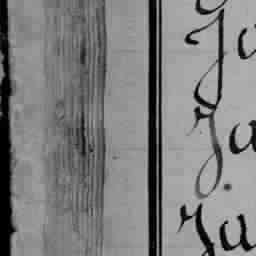 Ja
Ja
Ja